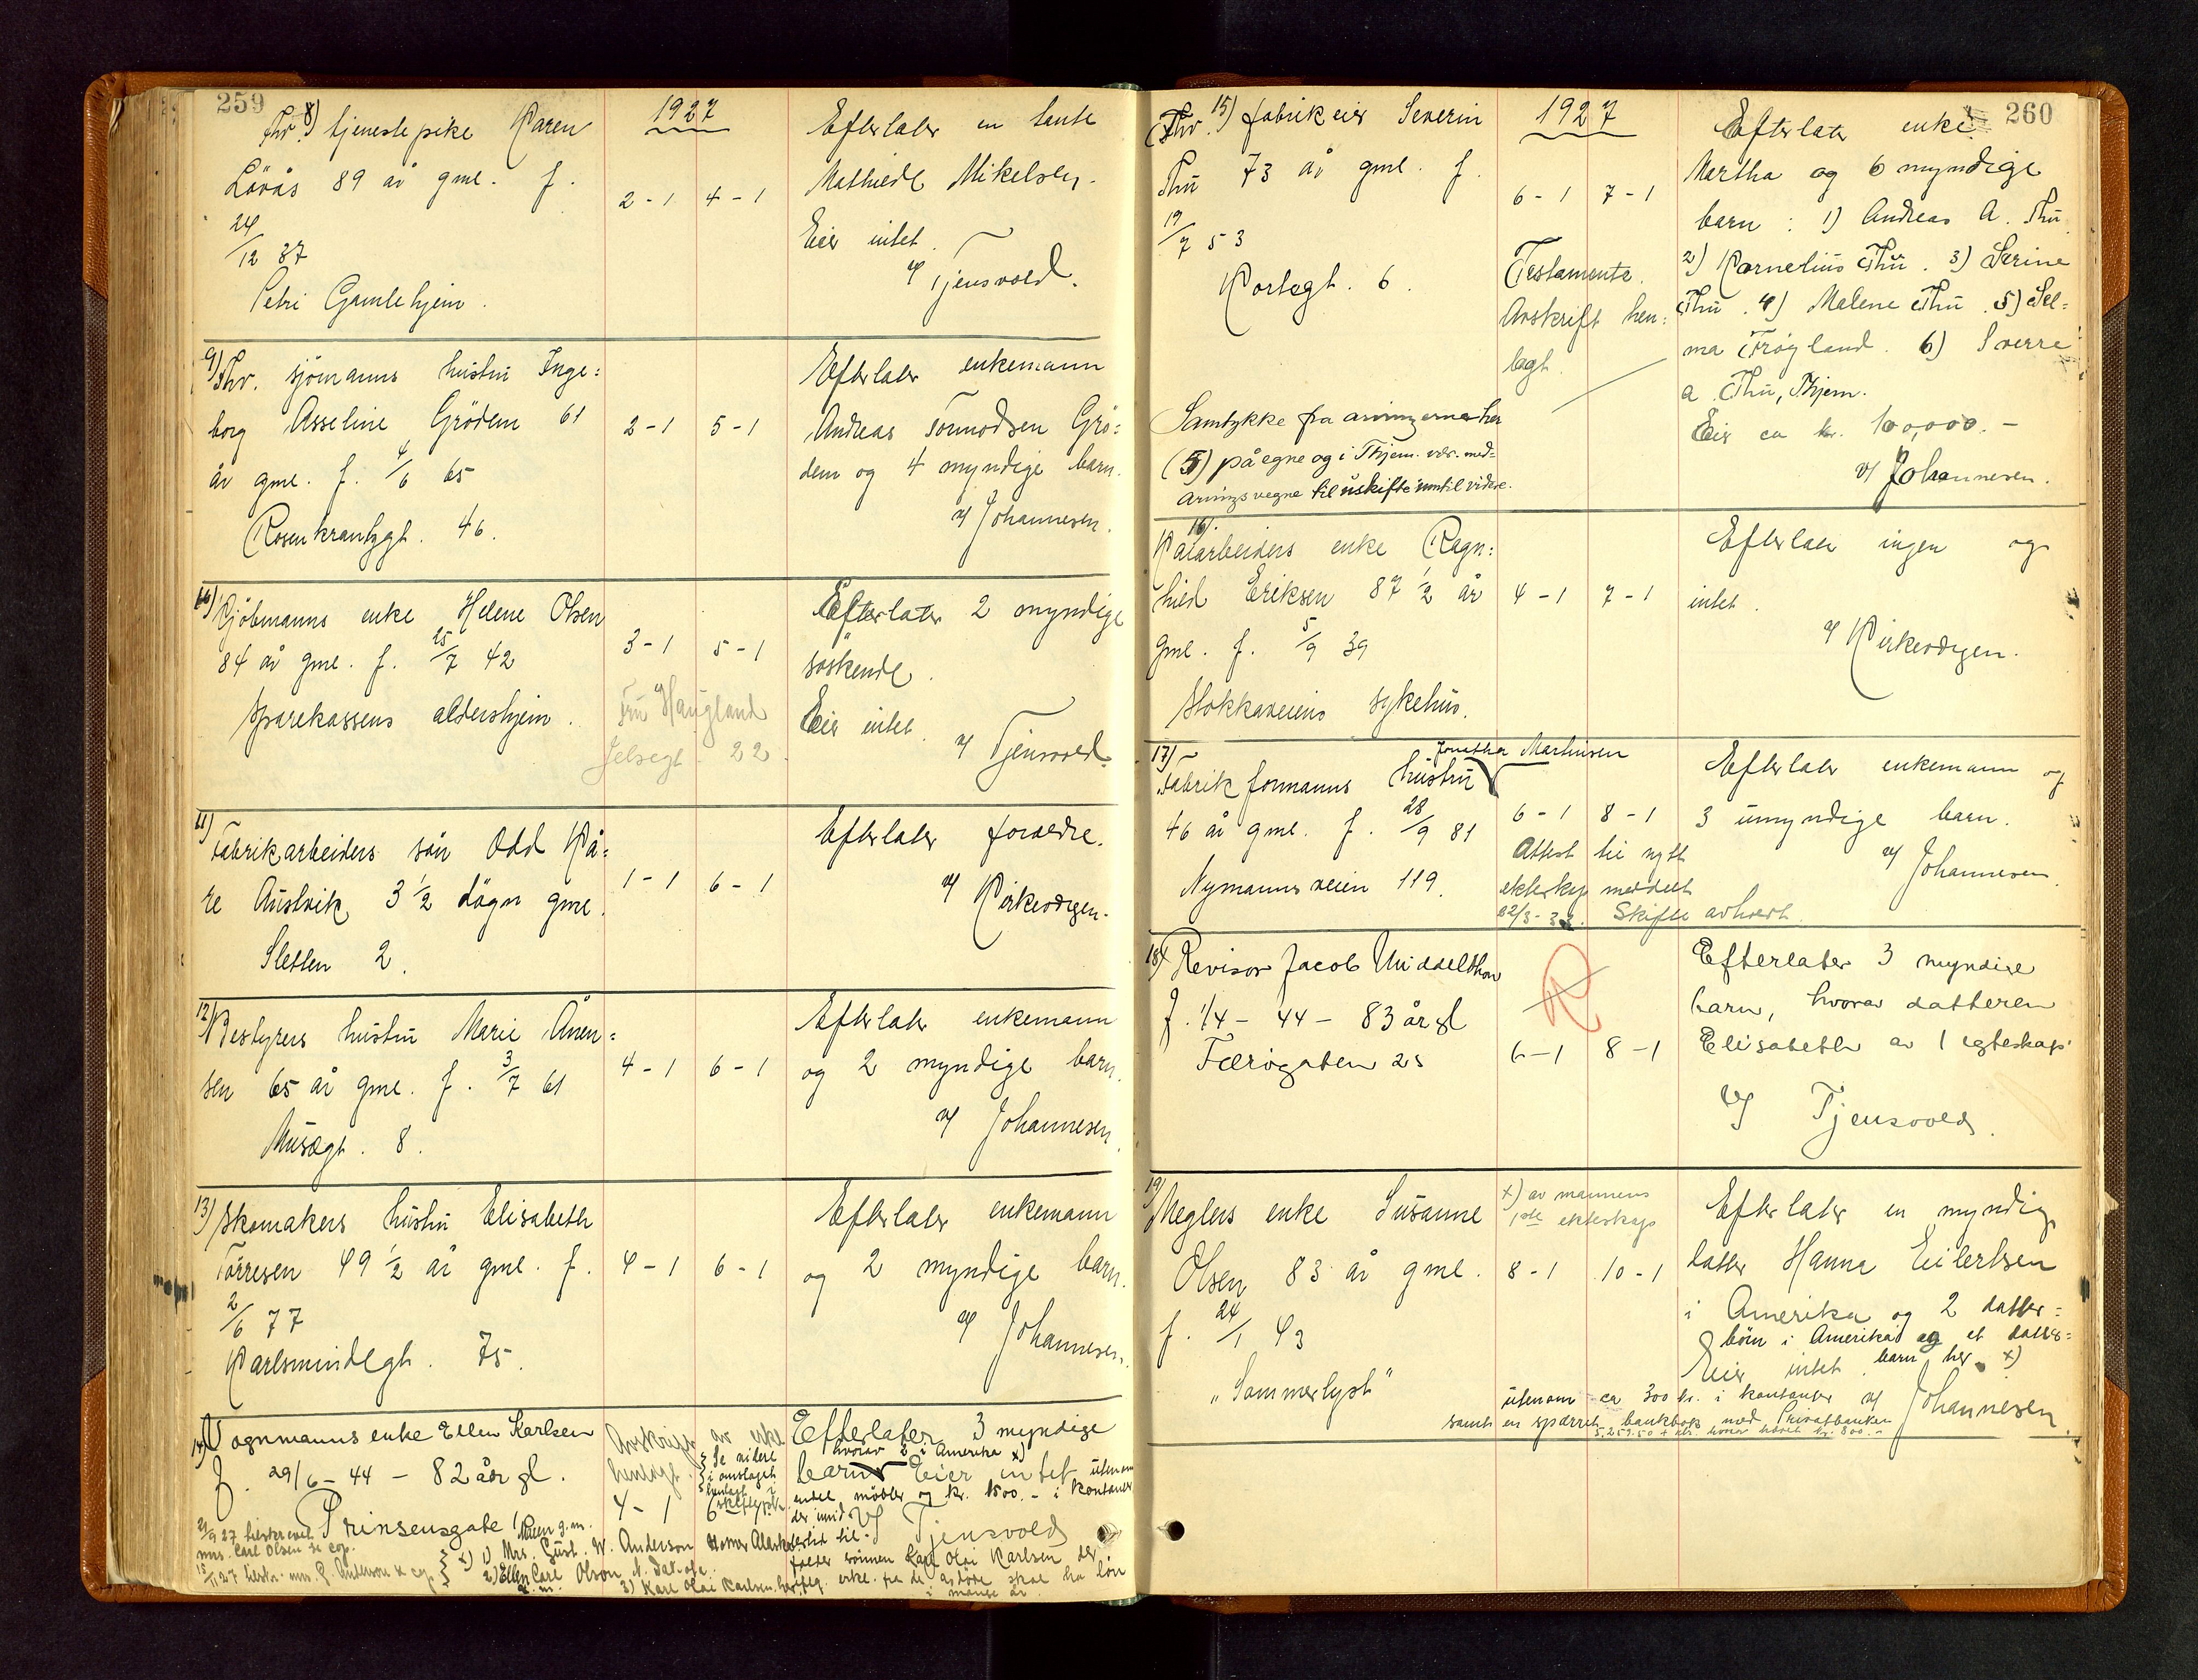 259
1927
8) Fhv. tjenestepike Karen
Lövås 89 år gml. f.
24/12 37
Petri Gamlehjem.
2-1 4-1
Efterlater en tante
Mathilde Mikelsen.
Eier intet.
v/ Tjensvold.
9) Fhv. sjömanns hustru Inge=
borg Asseline Grödem 61
år gml. f. 4/6 65
Rosenkrantzgt. 46.
2-1 5-1
Efterlater enkemann
Andreas Tormodsen Grö=
dem og 4 myndige barn.
v/ Johannesen.
10) Kjöbmanns enke Helene Olsen
84 år gml. f. 25/7 42
Sparekassens aldershjem.
3-1 5-1
Fru Haugland
Jelsegt. 22
Efterlater 2 myndige
söskende.
Eier intet.
v/ Tjensvold.
11) Fabrikarbeiders sön Odd Kå=
re Austvik 3 1/2 dögn gml.
Sletten 2.
1-1 6-1
Efterlater foreldre.
v/ Kirkevergen.
12) Bestyrers hustru Marie Ånen=
sen 65 år gml. f. 3/7 61
Musægt. 8.
4-1 6-1
Efterlater enkemann
og 2 myndige barn.
v/ Johannesen.
13) Skomakers hustru Elisabeth
Törresen 49 1/2 år gml. f.
2/6 77
Karlsmindegt. 75.
4-1 6-1
Efterlater enkemann
og 2 myndige barn.
v/ Johannesen.
14) Vognmanns enke Ellen Karlsen
f. 29/6 - 44 - 82 år gl.
Prinsensgate 1
Avskrift av
henlagt.
Se videre
i omslaget
4-1 6
Efterlater 3 myndige
hvorav 2 i Amerika x)
barn Eier intet utenom
endel møbler og kr. 1500.- i kontanter
v/ Tjensvold
21/9 27 tilskrevet
mrs. Carl Olsen se cop.
15/11 27 mrs. G. Anderson se cop.
x) 1) Mrs. Gust. W. Anderson
2) Ellen Carl Olson, N. Dakota
3) Karl Olai Karlsen, her
sönnen Karl Olai Karlsen
skal ha lön
i mange år.
260
1927
15) (Fhv. fabrikeier Severin
Thu 73 år gml. f.
19/7 53
Kortegt. 6.
Samtykke fra arvingerne her
(5) på egne og i Thjem. vær. med=
arvings vegne til uskifte inntil videre.
6-1 7-1
Testamente.
Avskrift hen=
lagt.
Efterlater enke
Martha og 6 myndige
barn: 1) Andreas A. Thu
2) Kornelius Thu. 3) Serine
Thu. 4) Malene Thu. 5) Sel=
ma Frøyland. 6) Sverre
a. Thu, Thjem.
Eier ca kr. 100,000.-
v/ Johannesen.
16) Kaiarbeiders enke Ragn=
hild Eriksen 87 1/2 år
gml. f. 5/9 39
Stokkaveiens sykehus.
4-1 7-1
Efterlater ingen og
intet.
v/ Kirkevergen.
17) Fabrikformanns hustru Jonetha Martinsen
46 år gml. f. 28/9 81
Nymannsveien 119.
6-1 8-1
Attest til nytt
ekteskap meddelt
22/3-33. Skifte avholdt.
Efterlater enkemann og
3 umyndige barn.
v/ Johannesen.
18) Revisor Jacob Middelthon
f. 1/4 - 44 - 83 år gl
Færöygaten 25
6-1 8-1
Efterlater 3 myndige
barn, hvorav datteren
Elisabeth av 1 egteskap
v/ Tjensvold.
19) Meglers enke Susanne
Olsen 83 år gml.
f. 24/1 43
"Sommerlyst"
x) av mannens
1ste ekteskap
8-1 10-1
Efterlater en myndig
datter Hanna Eilertsen
i Amerika og 2 datter=
börn i Amerika og et datter=
barn her x)
Eier intet
utenom ca 300 kr. i kontanter v/ Johannesen
samt en sparret bankbok med Privatbanken